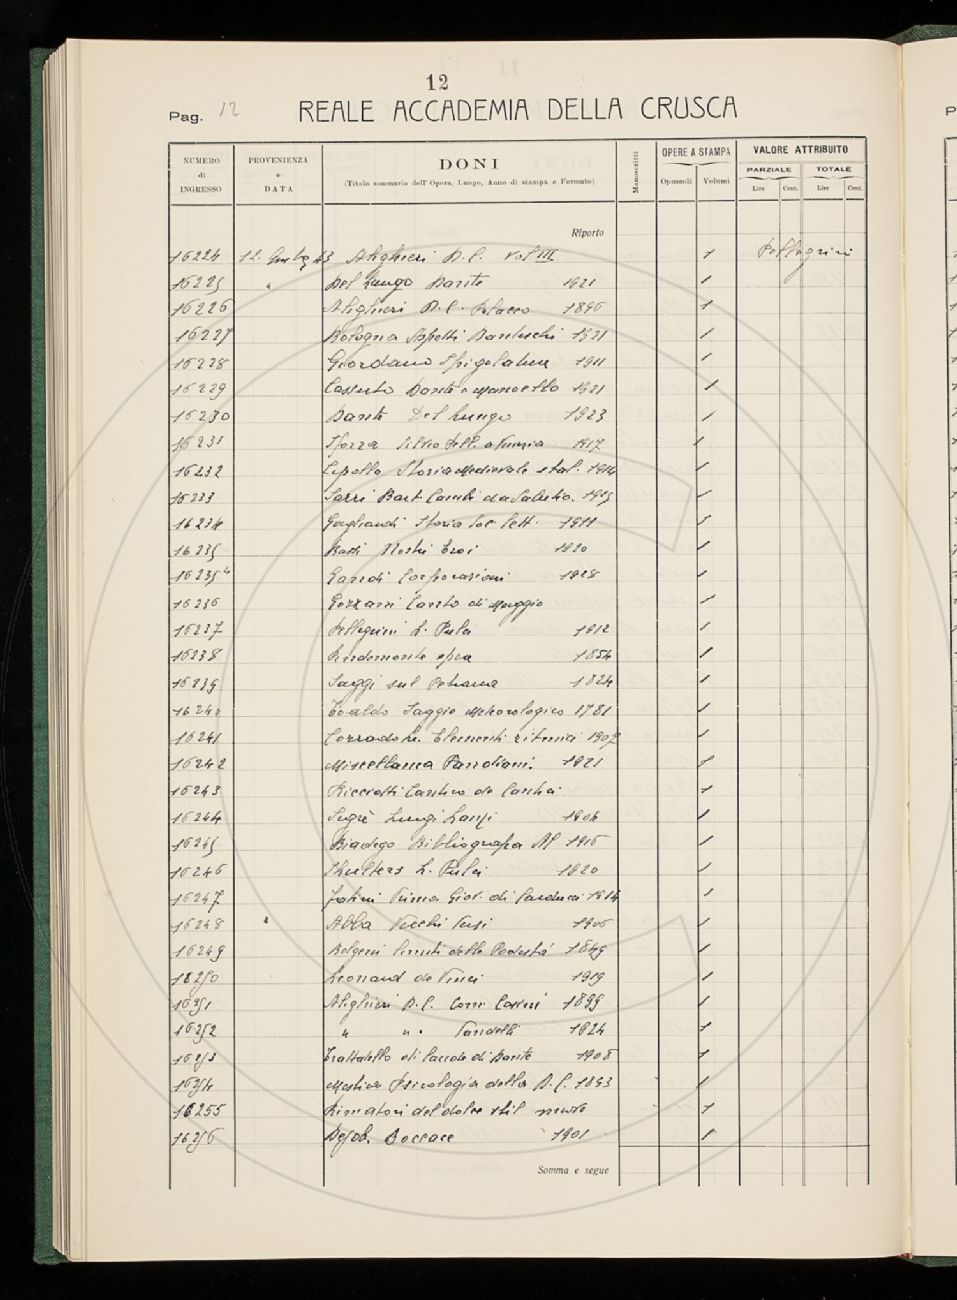 12
Pag. 12 REALE ACCADEMIA DELLA CRUSCA
NUMERO di INGRESSO PROVENIENZA e DATA DONI (Titolo sommario dell'Opera, Luogo, Anno di stampa e Formato) Manoscritti OPERE A STAMPA Opuscoli Volumi VALORE ATTRIBUITO PARZIALE Lire Cent. TOTALE Lire Cent.
Riporto
16224 12. 43 Alighieri D.C. Vol III 1 Pellegrini
16225 " Del Lungo Dante 1921 1
16226 Alighieri D.C. Polacco 1896 1
16227 Bologna Aspetti Danteschi 1921 1
16228 Giordano Spigolature 1911 1
16229 Cassuto Dante e Manoello 1921 1
16230 Dante Del Lungo 1923 1
16231 Sforza Silvio Pell. a Venezia 1917 1
16232 Cipolla Storia Medievale ital. 1914 1
16233 Sassi Bart. da 1915 1
16234 Gagliardi Storia Soc. lett. 1911 1
16235 Nostri Eroi 1920 1
16235b Corporazioni 1928 1
16236 Gozzani Canto di Maggio 1
16237 Pellegrini L. Pulci 1912 1
16238 Pindemonte 1854 1
16239 Saggi sul Petrarca 1824 1
16240 Toaldo Saggio Meteorologico 1781 1
16241 Corrado Elementi ritmica 1907 1
16242 Miscellanea Pandiani 1921 1
16243 Ricciotti Cantico de Cantici 1
16244 Segrè Luigi Lanzi 1904 1
16245 Biadego Bibliografia Al 1916 1
16246 Shulters L. Pulci 1920 1
16247 Fatini Prima Giov. di Carducci 1914 1
16248 " Abba Vecchi Versi 1906 1
16249 Bolgeni limiti delle Podestà 1849 1
16250 Leonard de Vinci 1919 1
16251 Alighieri D.C. Com. Casini 1899 1
16252 " " Vandelli 1924 1
16253 Trattatello di laude di Dante 1908 1
16254 Mestica Psicologia della D.C. 1893 1
16255 Rimatori del dolce stil nuovo 1
16256 Dejob. Boccace 1901 1
Somma e segue